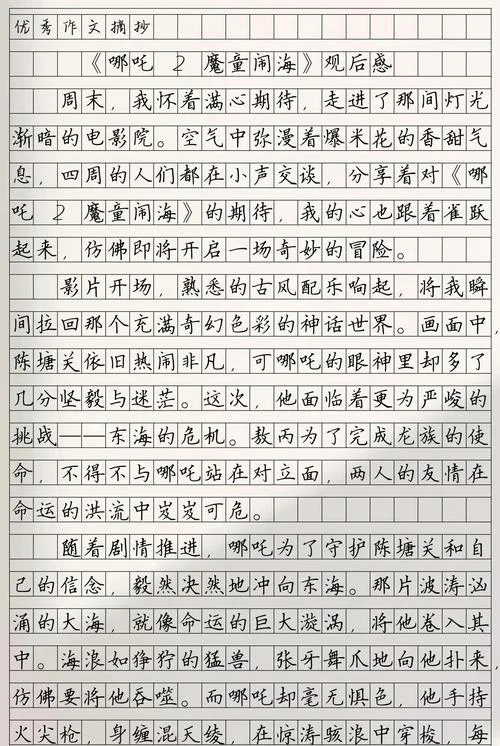 优秀作文摘抄
《哪吒 2 魔童闹海》观后感
周末，我怀着满心期待，走进了那间灯光
渐暗的电影院。空气中弥漫着爆米花的香甜气
息，四周的人们都在小声交谈，分享着对《哪
吒 2 魔童闹海》的期待，我的心也跟着雀跃
起来，仿佛即将开启一场奇妙的冒险。
影片开场，熟悉的古风配乐响起，将我瞬
间拉回那个充满奇幻色彩的神话世界。画面中，
陈塘关依旧热闹非凡，可哪吒的眼神里却多了
几分坚毅与迷茫。这次，他面临着更为严峻的
挑战——东海的危机。敖丙为了完成龙族的使
命，不得不与哪吒站在对立面，两人的友情在
命运的洪流中岌岌可危。
随着剧情推进，哪吒为了守护陈塘关和自
己的信念，毅然决然地冲向东海。那片波涛汹
涌的大海，就像命运的巨大漩涡，将他卷入其
中。海浪如狰狞的猛兽，张牙舞爪地向他扑来，
仿佛要将他吞噬。而哪吒却毫无惧色，他手持
火尖枪，身缠混天绫，在惊涛骇浪中穿梭，每